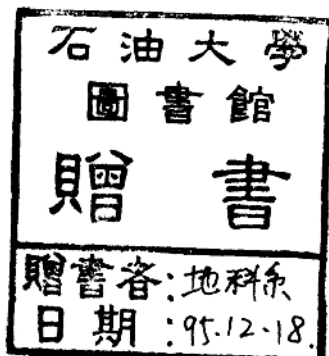 石油大學
圖書館
贈 書
贈書者:地科系
日期:95.12.18.